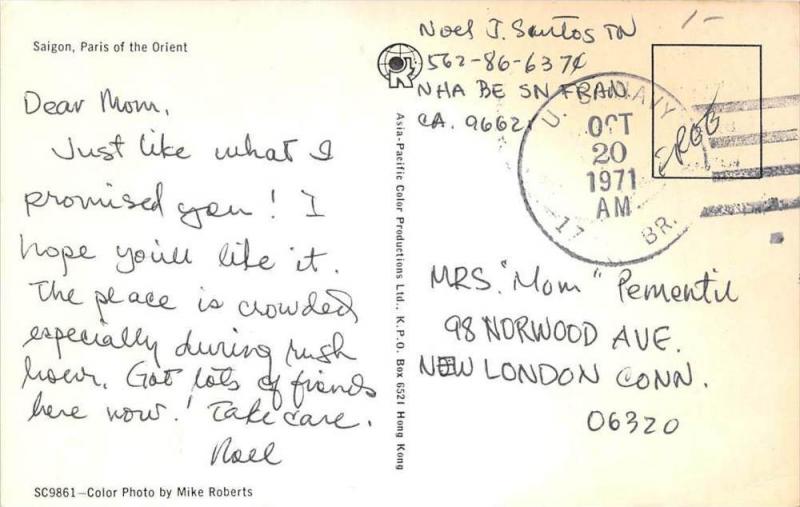 Saigon, Paris of the Orient
Dear Mom,
Just like what I
promised you! I
hope you'll like it.
The place is crowded
especially during rush
hour. Got lots of friends
here now! Take care.
Noel
SC9861—Color Photo by Mike Roberts
Asia-Pacific Color Productions Ltd., K.P.O. Box 6521 Hong Kong
Noel J. Santos TN
562-86-6374
NHA BE SN FRAN
CA. 96621
1-
U. S. NAVY
OCT
20
1971
AM
17 BR.
MRS. "Mom" Pementil
98 NORWOOD AVE.
NEW LONDON CONN.
06320